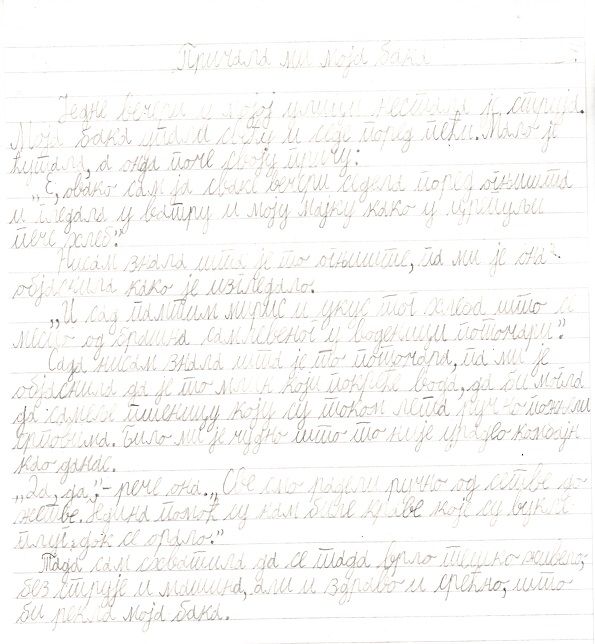 Причала ми моја бака
Једне вечери у мојој улици нестала је струја.
Моја бака упали свећу и седе поред пећи. Мало је
ћутала, а онда поче своју причу:
„Е, овако сам ја сваке вечери седела поред огњишта
и гледала у ватру и моју мајку како у црепуљи
пече хлеб.“
Нисам знала шта је то огњиште, па ми је она
објаснила како је изгледало.
„И сад памтим мирис и укус тог хлеба што се
месио од брашна самлевеног у воденици поточари.“
Сада нисам знала шта је то поточара, па ми је
објаснила да је то млин који покреће вода, да би могла
да самеље пшеницу коју су током лета ручно пожњели
срповима. Било ми је чудно што то није урадио комбајн
као данас.
„Да, да“ - рече она. „Све смо радели ручно од сетве до
жетве. Једина помоћ су нам биле краве које су вукле
плуг, док се орало.“
Тада сам схватила да се тада врло тешко живело,
без струје и машина, али и здраво и срећно, што
би рекла моја бака.